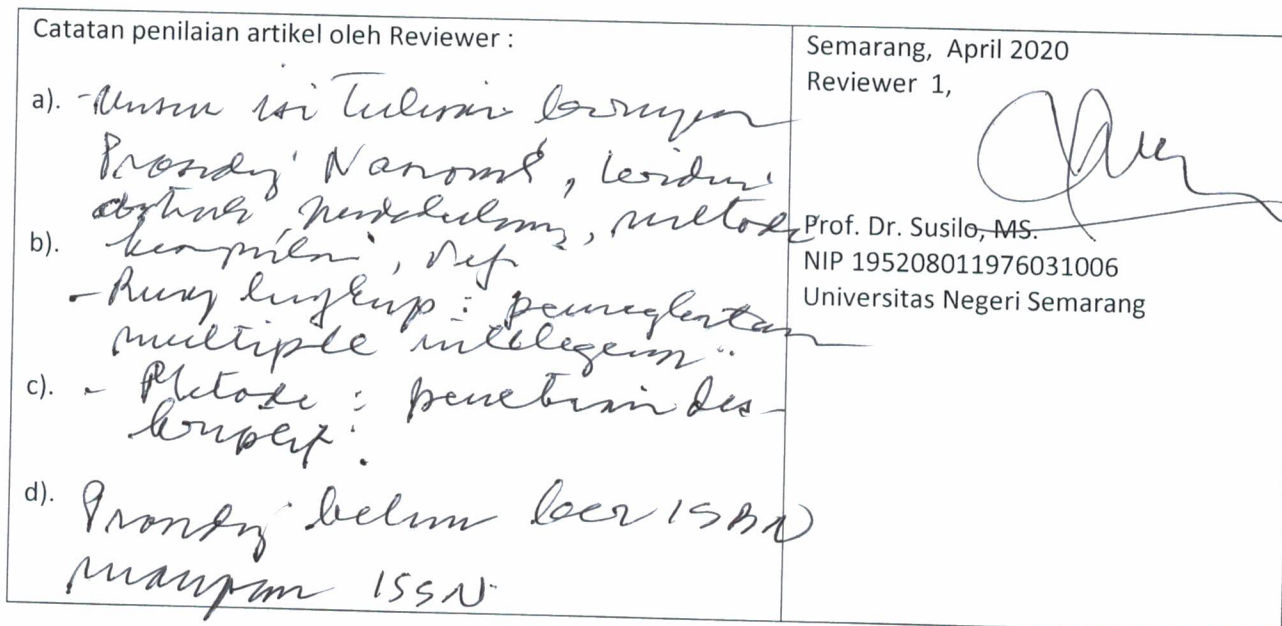 Catatan penilaian artikel oleh Reviewer :
a). - Unsur isi tulisan
Prosiding Nasional, terdiri
abstrak, pendahuluan, metode
b). kesimpulan, ref
- Ruang lingkup :
multiple
c). - Metode : penelitian des-
kriptif.
d). Prosiding belum ber ISBN
maupun ISSN
Semarang, April 2020
Reviewer 1,
Prof. Dr. Susilo, MS.
NIP 195208011976031006
Universitas Negeri Semarang